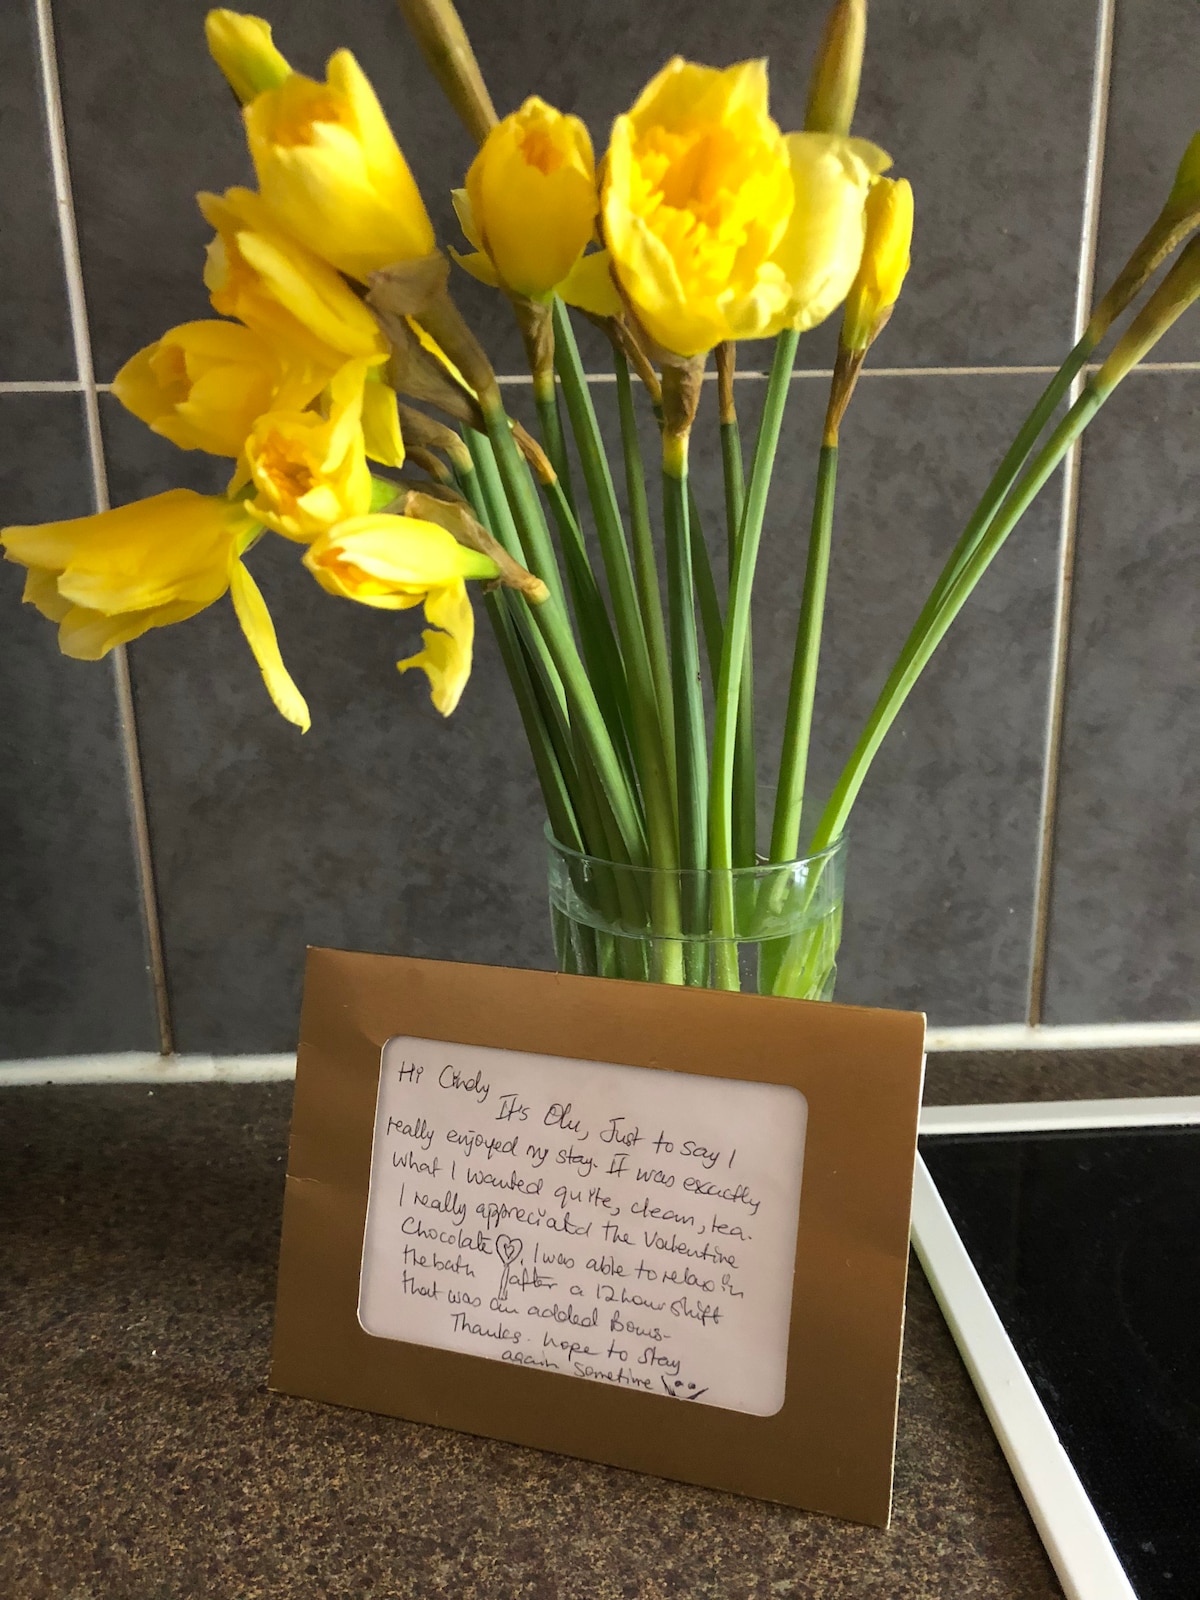 Hi Cindy
It's Olu, Just to say I
really enjoyed my stay. It was exactly
what I wanted quite, clean, tea.
I really appreciated the Valentine
Chocolate. I was able to relax in
the bath after a 12 hour shift
that was an added Bonus-
Thanks. hope to stay
again sometime